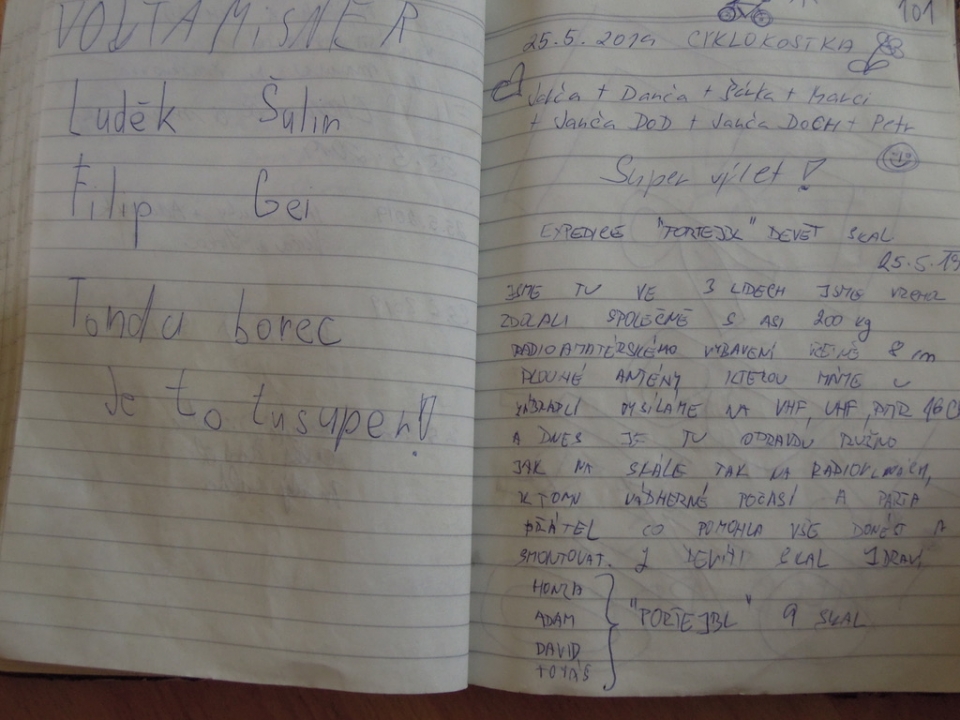 VOLTAMiSNER
Luděk Šulin
Filip Gei
Tonda borec
Je to tusuper!
101
25.5.2019 CYKLOKOSTKA
+ Danča + Šárka + Marci
+ Vanča DOD + Vanča DOCH + Petr
Super výlet!
EXPEDICE "PORTEJBL" DEVĚT SKAL
25.5.19
JSME TU VE 3 LIDECH JSME
SPOLEČNĚ S ASI 200 kg
RADIOAMATÉRSKÉHO VYBAVENÍ 8 m
DLOUHÉ ANTÉNY KTEROU MÁME U
ZÁBRADLÍ VYSÍLÁME NA VHF, UHF, PMR
A DNES JE TU OPRAVDU RUŠNO
JAK NA SKÁLE TAK NA RADIOVLNÁCH,
K TOMU NÁDHERNÉ POČASÍ A PARTA
PŘÁTEL CO POMOHLA VŠE DONÉST A
SMONTOVAT. Z DEVÍTI SKAL ZDRAVÍ
HONZA
ADAM
DAVID
TOMÁŠ
"PORTEJBL" 9 SKAL